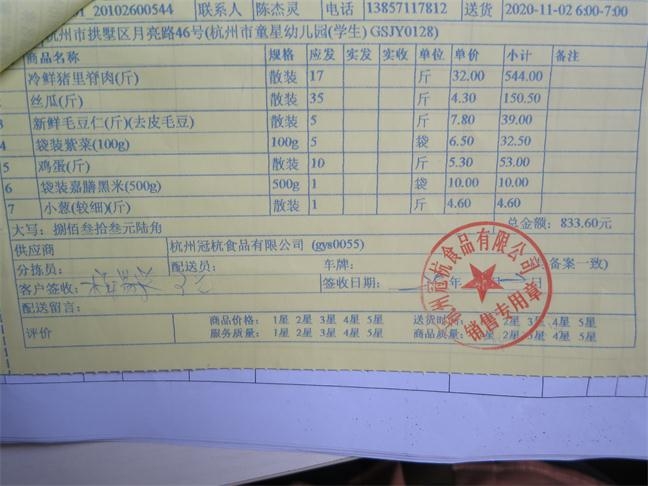 20102600544 联系人 陈杰灵 电话 13857117812 送货 2020-11-02 6:00-7:00
杭州市拱墅区月亮路46号(杭州市童星幼儿园(学生) GSJY0128)
商品名称 规格 应发 实发 实收 单位 单价 小计 备注
冷鲜猪里脊肉(斤) 散装 17 斤 32.00 544.00
丝瓜(斤) 散装 35 斤 4.30 150.50
3 新鲜毛豆仁(斤)(去皮毛豆) 散装 5 斤 7.80 39.00
4 袋装紫菜(100g) 100g 5 袋 6.50 32.50
5 鸡蛋(斤) 散装 10 斤 5.30 53.00
6 袋装嘉膳黑米(500g) 500g 1 袋 10.00 10.00
7 小葱(较细)(斤) 散装 1 斤 4.60 4.60
大写: 捌佰叁拾叁元陆角 总金额: 833.60元
供应商 杭州冠杭食品有限公司 (gys0055)
分拣员: 配送员: 车牌: 备案一致)
客户签收: 签收日期: 年 日
配送留言:
评价 商品价格: 1星 2星 3星 4星 5星 送货时 2星 3星 4星 5星
服务质量: 1星 2星 3星 4星 5星 商品质量: 1星 2星 3星 4星 5星
杭州冠杭食品有限公司
销售专用章